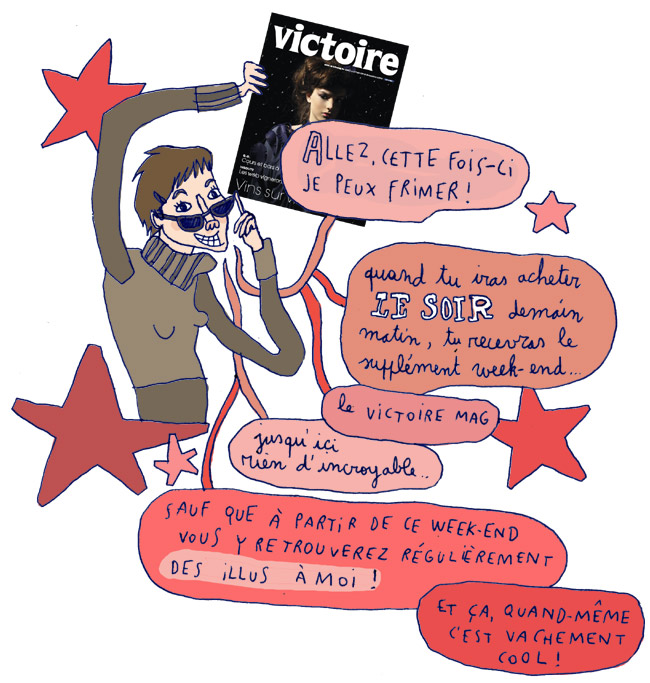 victoire
Cours et bars à
Les web vignerons
Vins sur
ALLEZ, CETTE FOIS-CI
JE PEUX FRIMER !
quand tu iras acheter
LE SOIR demain
matin, tu recevras le
supplément week-end...
le VICTOIRE MAG
jusqu'ici
rien d'incroyable...
SAUF QUE À PARTIR DE CE WEEK-END
VOUS Y RETROUVEREZ RÉGULIÈREMENT
DES iLLUS À MOi !
ET ÇA, QUAND-MÊME
C'EST VACHEMENT
COOL !